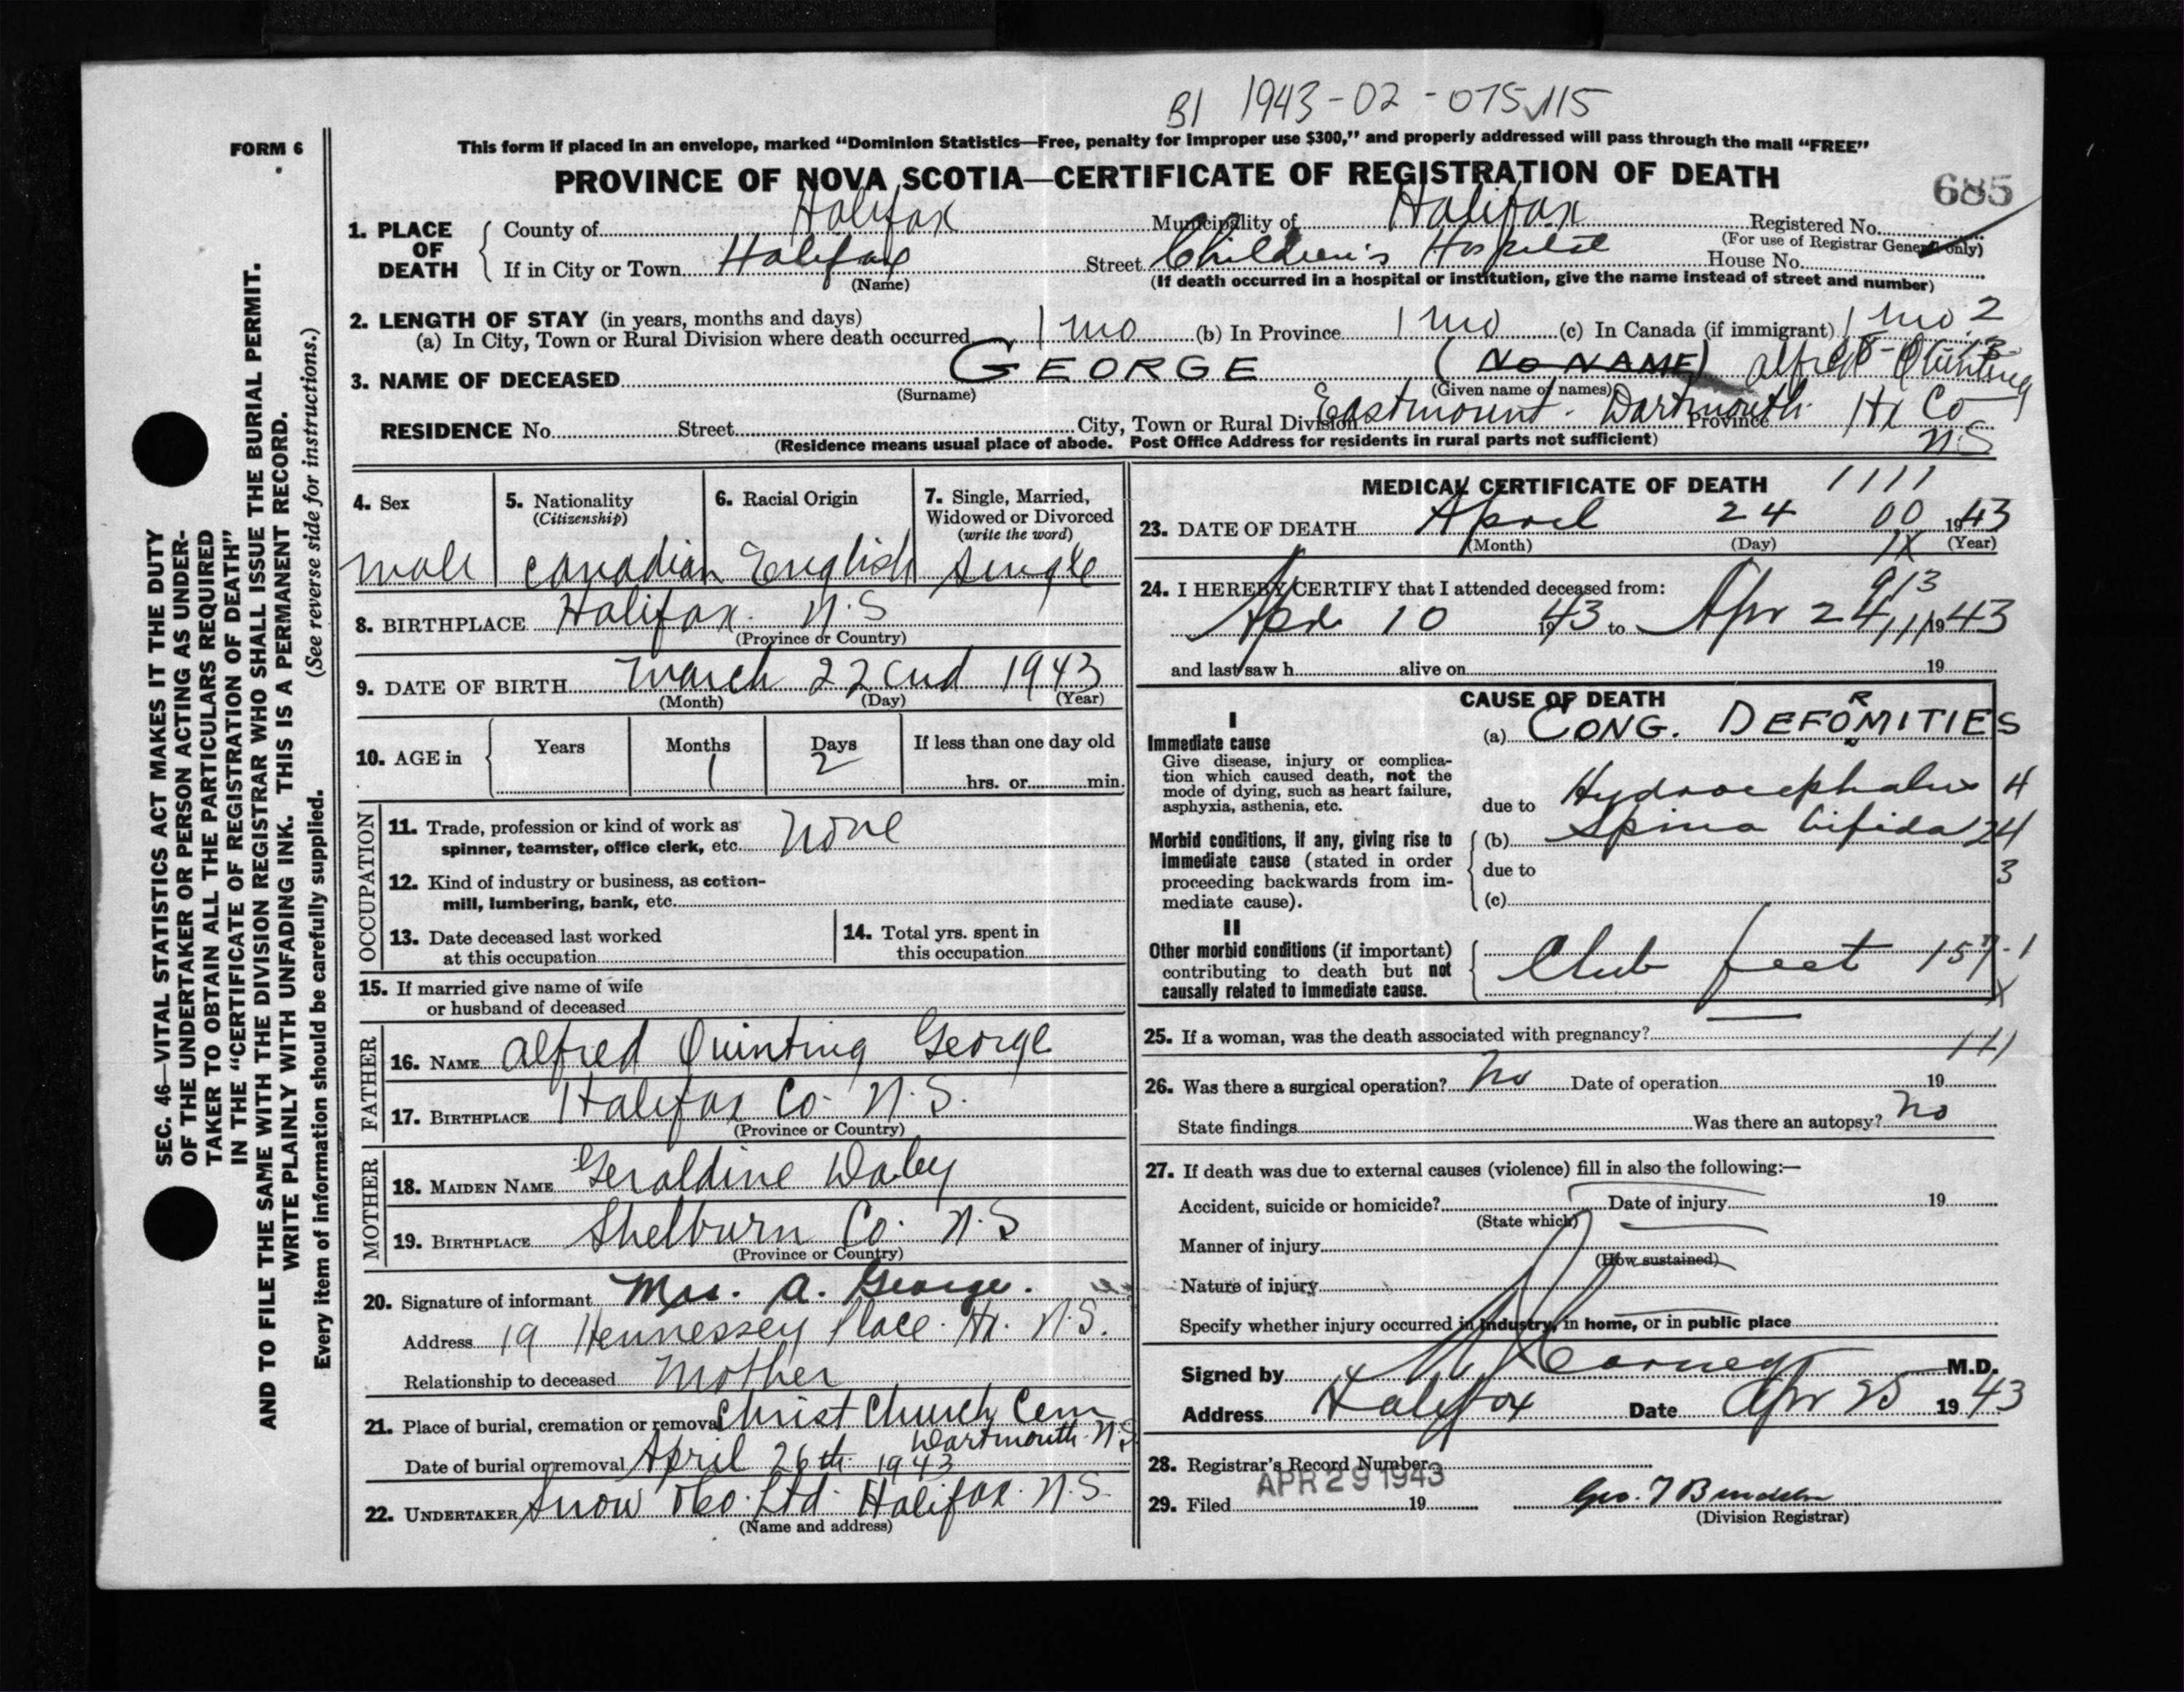 B1 1943-02-075115
FORM 6
This form if placed in an envelope, marked “Dominion Statistics—Free, penalty for improper use $300,” and properly addressed will pass through the mail “FREE”
PROVINCE OF NOVA SCOTIA—CERTIFICATE OF REGISTRATION OF DEATH
685
1. PLACE OF DEATH
County of Halifax Municipality of Halifax Registered No.
(For use of Registrar General only)
If in City or Town Halifax Street Children's Hospital House No.
(Name) (If death occurred in a hospital or institution, give the name instead of street and number)
2. LENGTH OF STAY (in years, months and days)
(a) In City, Town or Rural Division where death occurred 1 mo (b) In Province 1 mo (c) In Canada (if immigrant) 1 mo 2
3. NAME OF DECEASED GEORGE (NO NAME) Alfred Quinting
(Surname) (Given name or names)
RESIDENCE No. Street City, Town or Rural Division Eastmount. Dartmouth. Province Hx Co
N S
(Residence means usual place of abode. Post Office Address for residents in rural parts not sufficient)
4. Sex
male
5. Nationality
(Citizenship)
Canadian
6. Racial Origin
English
7. Single, Married,
Widowed or Divorced
(write the word)
single
8. BIRTHPLACE Halifax. N.S
(Province or Country)
9. DATE OF BIRTH March 22cnd 1943
(Month) (Day) (Year)
10. AGE in Years Months Days If less than one day old
1 2 hrs. or min.
OCCUPATION
11. Trade, profession or kind of work as
spinner, teamster, office clerk, etc. none
12. Kind of industry or business, as cotton-
mill, lumbering, bank, etc.
13. Date deceased last worked
at this occupation
14. Total yrs. spent in
this occupation
15. If married give name of wife
or husband of deceased
FATHER
16. NAME Alfred Quinting George
17. BIRTHPLACE Halifax Co. N.S.
(Province or Country)
MOTHER
18. MAIDEN NAME Geraldine Daley
19. BIRTHPLACE Shelburn Co. N.S
(Province or Country)
20. Signature of informant Mrs. A. George.
Address 19 Hennessey Place. Hx. N.S.
Relationship to deceased Mother
21. Place of burial, cremation or removal Christ Church Cem
Dartmouth N.S
Date of burial or removal April 26th 1943
22. UNDERTAKER Snow & Co. Ltd. Halifax. N.S.
(Name and address)
MEDICAL CERTIFICATE OF DEATH 1111
23. DATE OF DEATH April 24 00 1943
(Month) (Day) 1X (Year)
24. I HEREBY CERTIFY that I attended deceased from: 913
10 1943 to Apr 24 1943
and last saw h alive on 19
CAUSE OF DEATH
I
Immediate cause
Give disease, injury or complica-
tion which caused death, not the
mode of dying, such as heart failure,
asphyxia, asthenia, etc.
(a) CONG. DEFORMITIES
due to Hydrocephalus 4
Morbid conditions, if any, giving rise to
immediate cause (stated in order
proceeding backwards from im-
mediate cause).
(b) Spina bifida 24
due to 3
(c)
II
Other morbid conditions (if important)
contributing to death but not
causally related to immediate cause.
Club feet 157-1
X
25. If a woman, was the death associated with pregnancy?
111
26. Was there a surgical operation? No Date of operation 19
State findings Was there an autopsy? No
27. If death was due to external causes (violence) fill in also the following:—
Accident, suicide or homicide? Date of injury 19
(State which)
Manner of injury
(How sustained)
Nature of injury
Specify whether injury occurred in industry, in home, or in public place
Signed by M.D.
Address Halifax Date Apr 25 1943
28. Registrar's Record Number
APR 29 1943
29. Filed 19
(Division Registrar)
SEC. 46—VITAL STATISTICS ACT MAKES IT THE DUTY
OF THE UNDERTAKER OR PERSON ACTING AS UNDER-
TAKER TO OBTAIN ALL THE PARTICULARS REQUIRED
IN THE “CERTIFICATE OF REGISTRATION OF DEATH”
AND TO FILE THE SAME WITH THE DIVISION REGISTRAR WHO SHALL ISSUE THE BURIAL PERMIT.
WRITE PLAINLY WITH UNFADING INK. THIS IS A PERMANENT RECORD.
Every item of information should be carefully supplied. (See reverse side for instructions.)